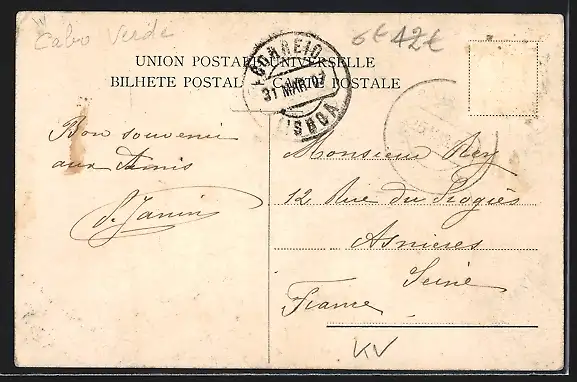 Cabo Verde
6€ 12€
UNION POSTALE UNIVERSELLE
BILHETE POSTAL - CARTE POSTALE
CORREIO
31 MAR. 07
LISBOA
Bon souvenir
aux Amis
S. Janin
Monsieur Rey
12 Rue du Progrès
Asnieres
Seine
France
KV